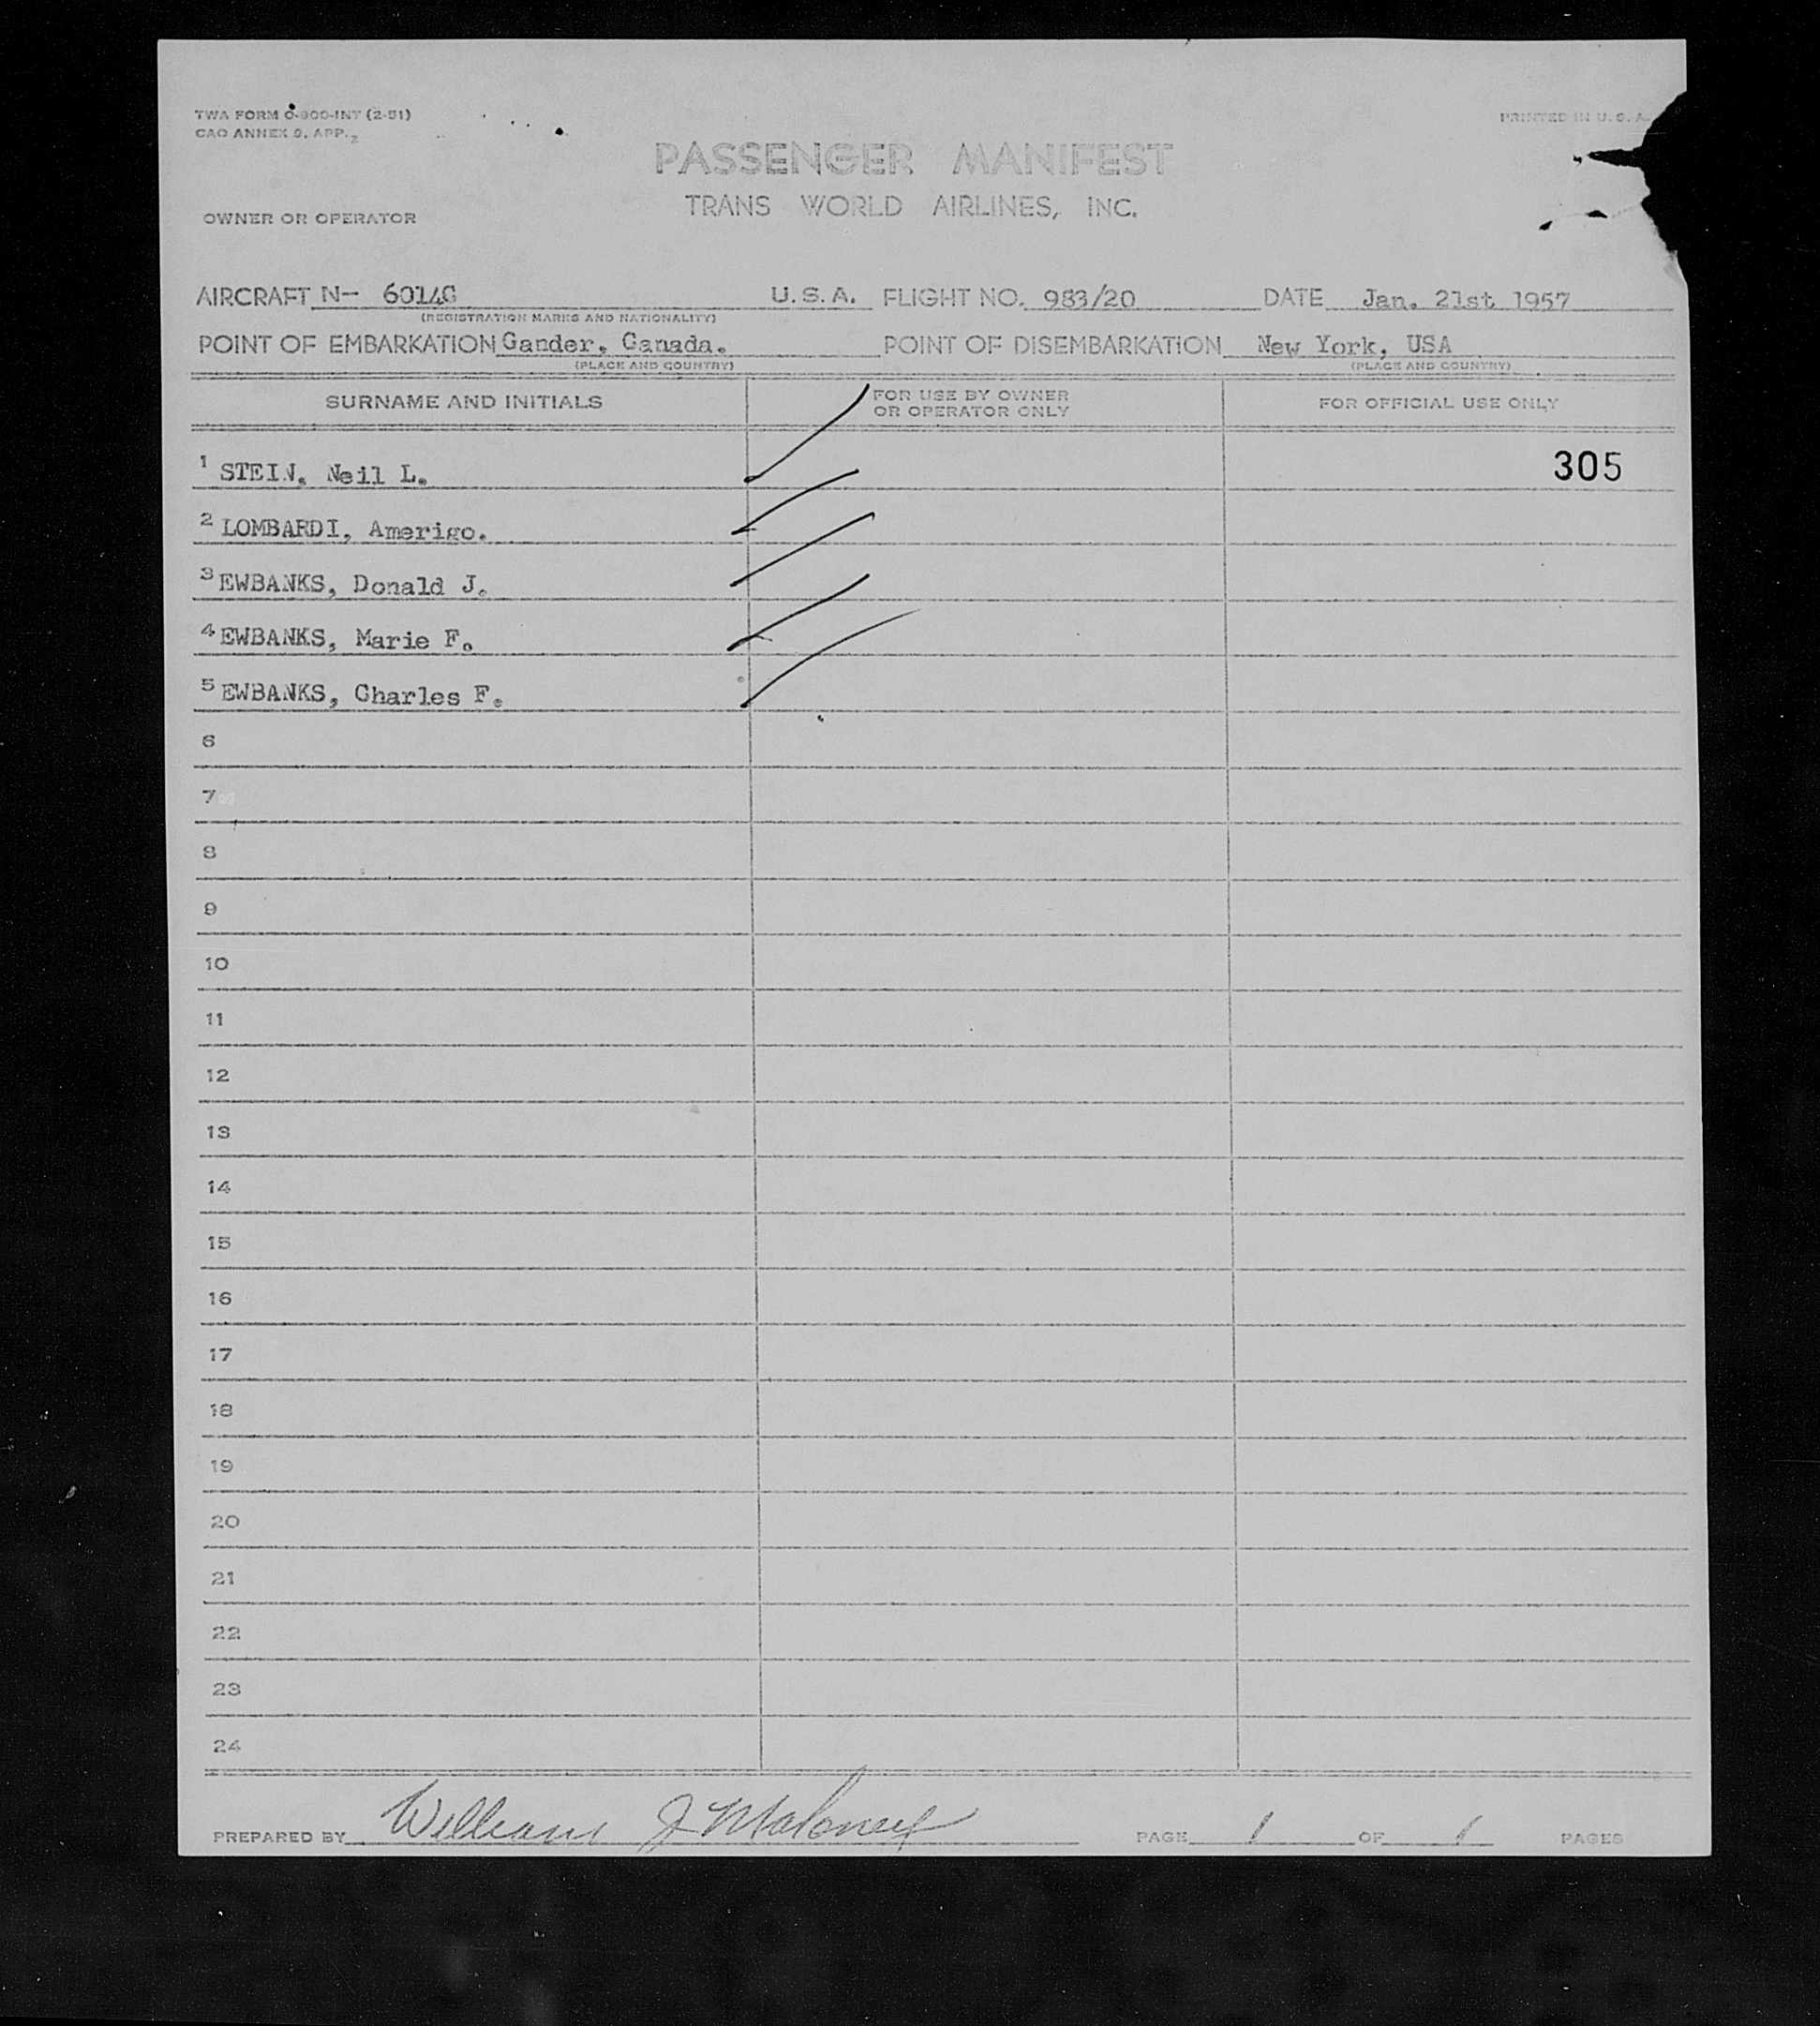 TWA FORM O-900-INT (2-51)
CAO ANNEX 9, APP. 2
PRINTED IN U. S. A.
PASSENGER MANIFEST
TRANS WORLD AIRLINES, INC.
OWNER OR OPERATOR
AIRCRAFT N- 6014C U. S. A. FLIGHT NO. 983/20 DATE Jan. 21st 1957
(REGISTRATION MARKS AND NATIONALITY)
POINT OF EMBARKATION Gander, Canada. POINT OF DISEMBARKATION New York, USA
(PLACE AND COUNTRY) (PLACE AND COUNTRY)
SURNAME AND INITIALS FOR USE BY OWNER OR OPERATOR ONLY FOR OFFICIAL USE ONLY
1 STEIN, Neil L. 305
2 LOMBARDI, Amerigo.
3 EWBANKS, Donald J.
4 EWBANKS, Marie F.
5 EWBANKS, Charles F.
6
7
8
9
10
11
12
13
14
15
16
17
18
19
20
21
22
23
24
PREPARED BY William J Maloney PAGE 1 OF 1 PAGES